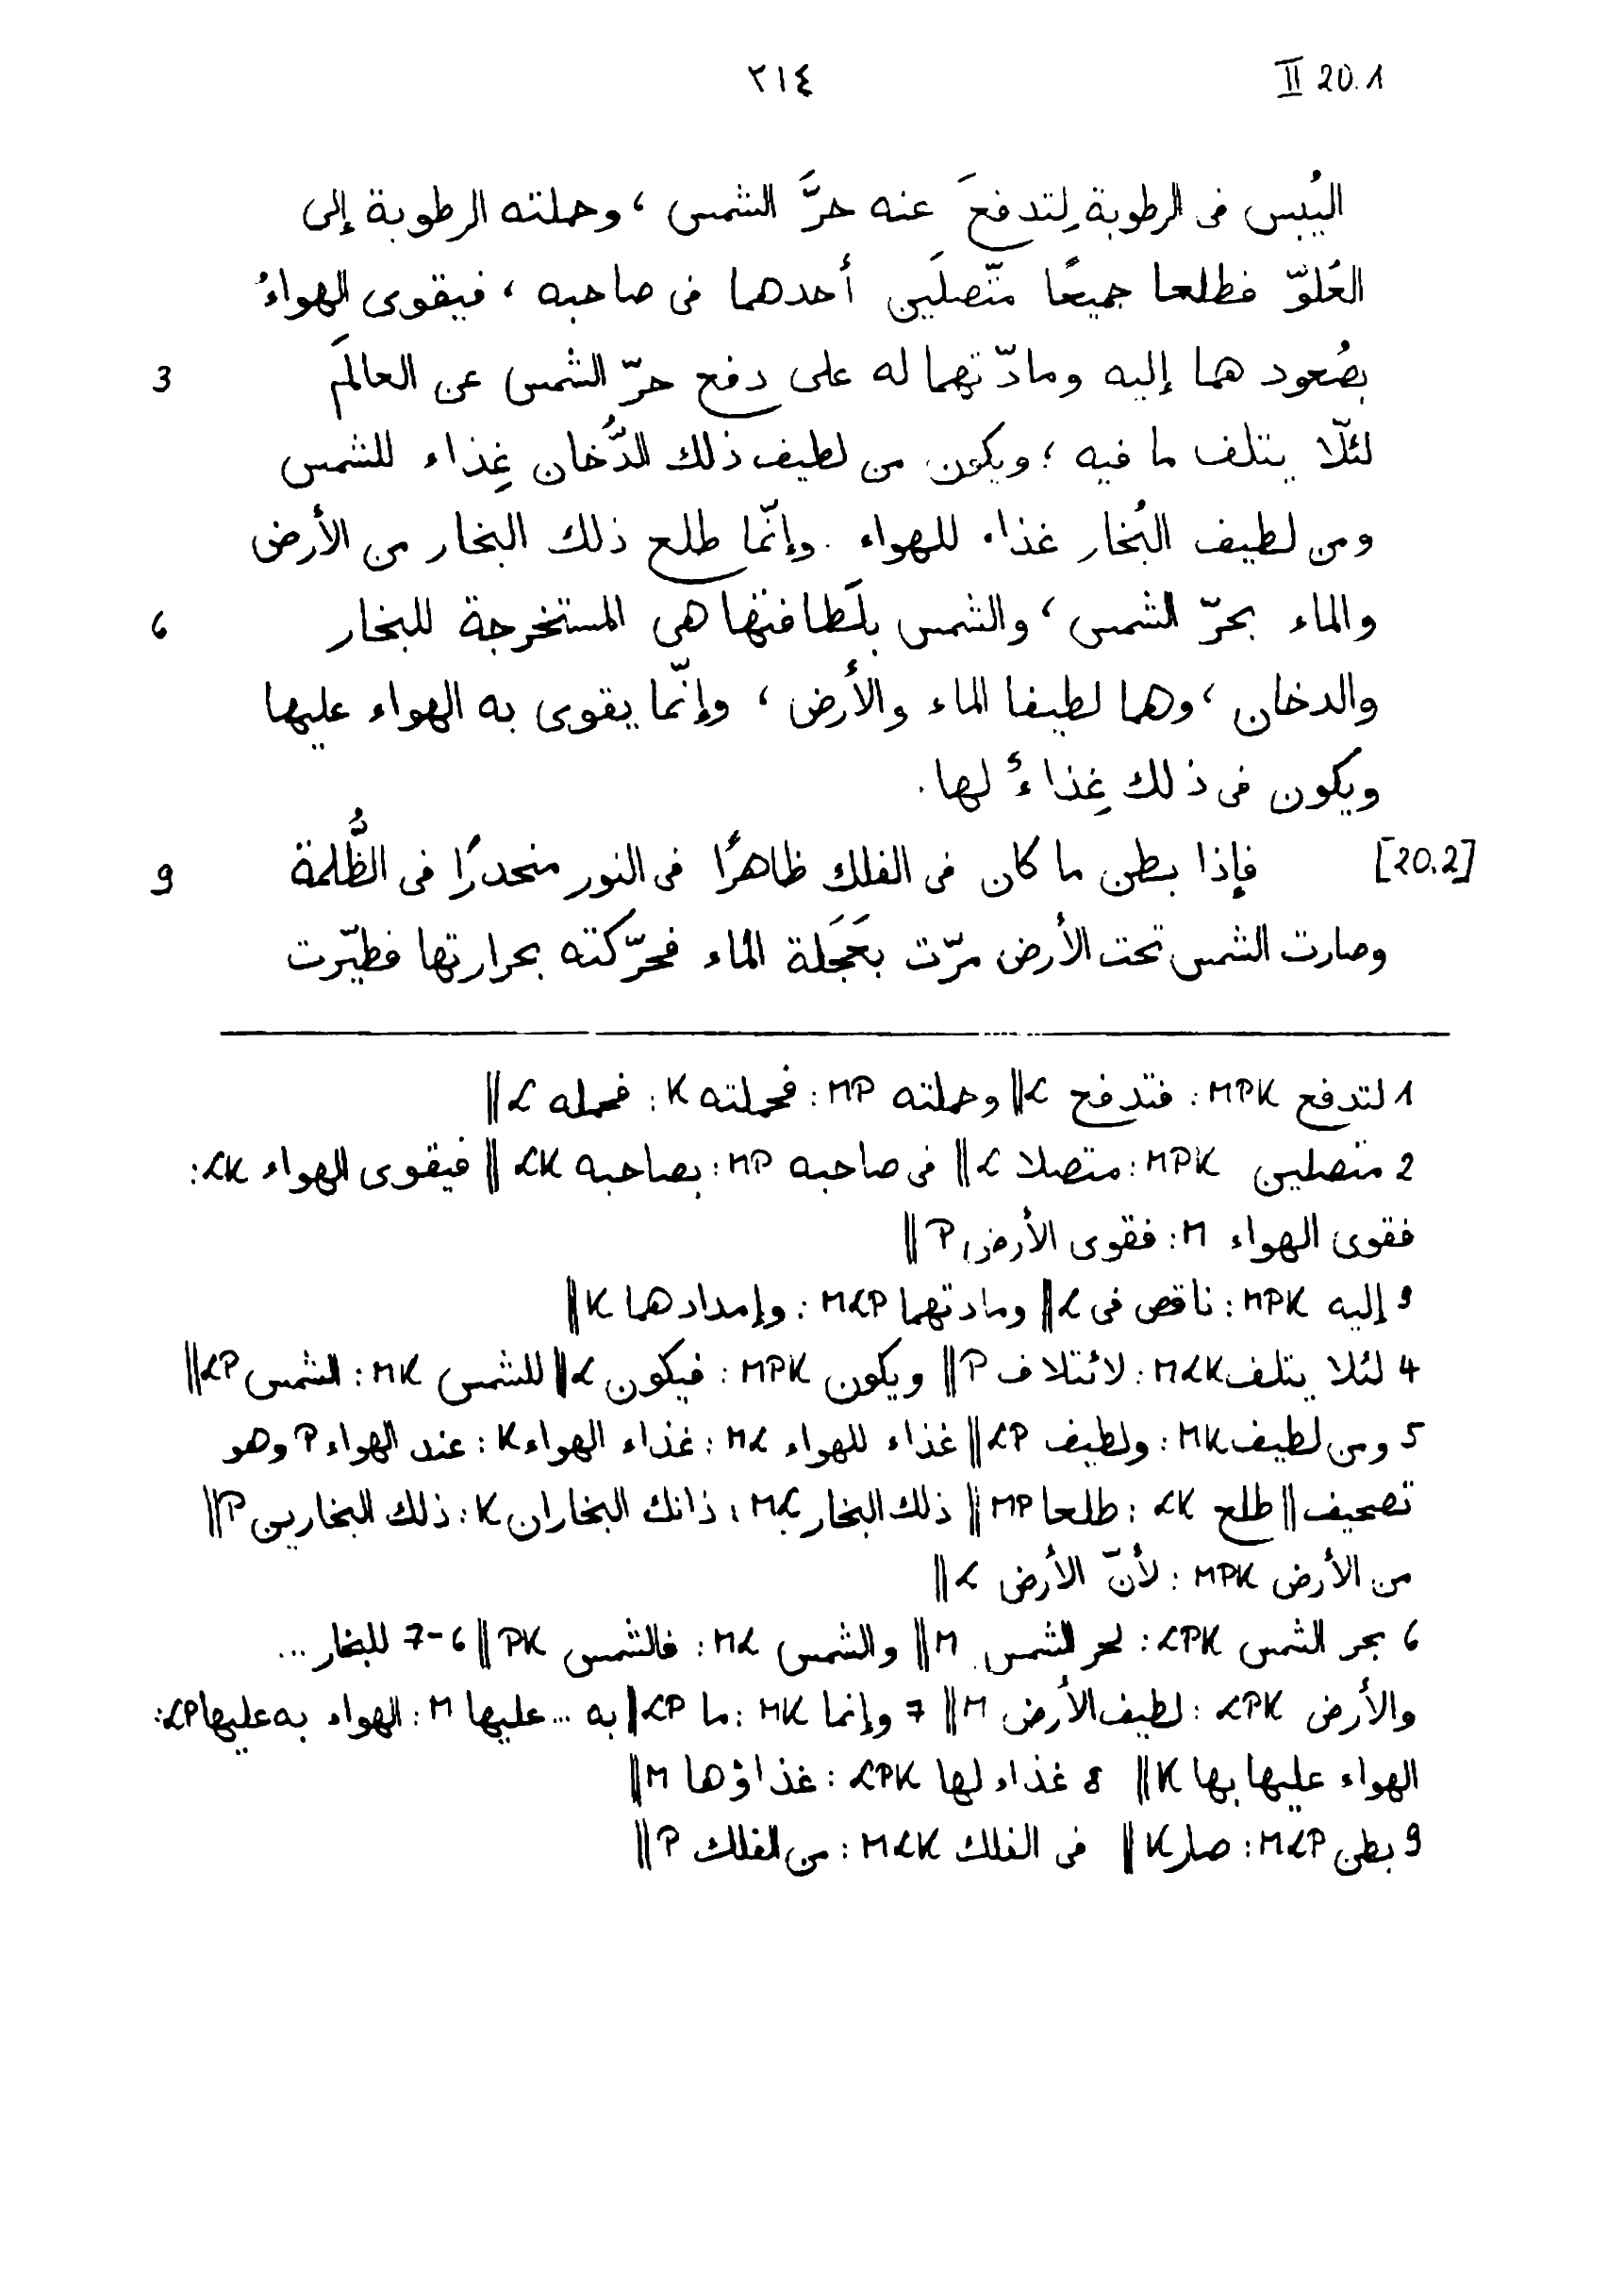 ٢١٤ II 20.1
اليُبس فى الرطوبة لِتدفعَ عنه حرَّ الشمس ، وحملته الرطوبة إلى
العُلوّ فطلعا جميعًا متّصلَين أحدهما فى صاحبه ، فيقوى الهواءُ
3 بصُعودهما إليه ومادّتهما له على دفع حرّ الشمس عن العالَم
لئلّا يتلف ما فيه ؛ ويكون من لطيف ذلك الدُّخان غِذاء للشمس
ومن لطيف البُخار غذاء للهواء . وإنّما طلع ذلك البخار من الأرض
6 والماء بحرّ الشمس ، والشمس بلَطافتها هى المستخرجة للبخار
والدخان ، وهما لطيفا الماء والأرض ، وإنّما يقوى به الهواء عليها
ويكون فى ذلك غِذاءٌ لها .
[20.2] فإذا بطن ما كان فى الفلك ظاهرًا فى النور منحدرًا فى الظُّلمة 9
وصارت الشمس تحت الأرض مرّت بعَجَلة الماء فحرّكته بحرارتها فطيّرت
1 لتدفع MPK : فتدفع L || وحملته MP : فحملته K : فحمله L ||
2 متصلين MPK : متصلا L || فى صاحبه MP : بصاحبه LK || فيقوى الهواء LK :
فقوى الهواء M : فقوى الأرض P ||
9 إليه MPK : ناقص فى L || ومادتهما MLP : وإمدادهما K ||
4 لئلا يتلف MLK : لائتلاف P || ويكون MPK : فيكون L || للشمس MK : الشمس LP ||
5 ومن لطيف MK : ولطيف LP || غذاء للهواء ML : غذاء الهواء K : عند الهواء P وهو
تصحيف || طلع LK : طلعا MP || ذلك البخار ML : ذانك البخاران K : ذلك البخارين P ||
من الأرض MPK : لأنّ الأرض L ||
6 بحر الشمس LPK : لحر الشمس M || والشمس ML : فالشمس PK || 6-7 للبخار ...
والأرض LPK : لطيف الأرض M || 7 وإنما MK : ما LP || به ... عليها M : الهواء به عليها LP :
الهواء عليها بها K || 8 غذاء لها LPK : غذاؤها M ||
9 بطن MLP : صار K || فى الفلك MLK : من الفلك P ||